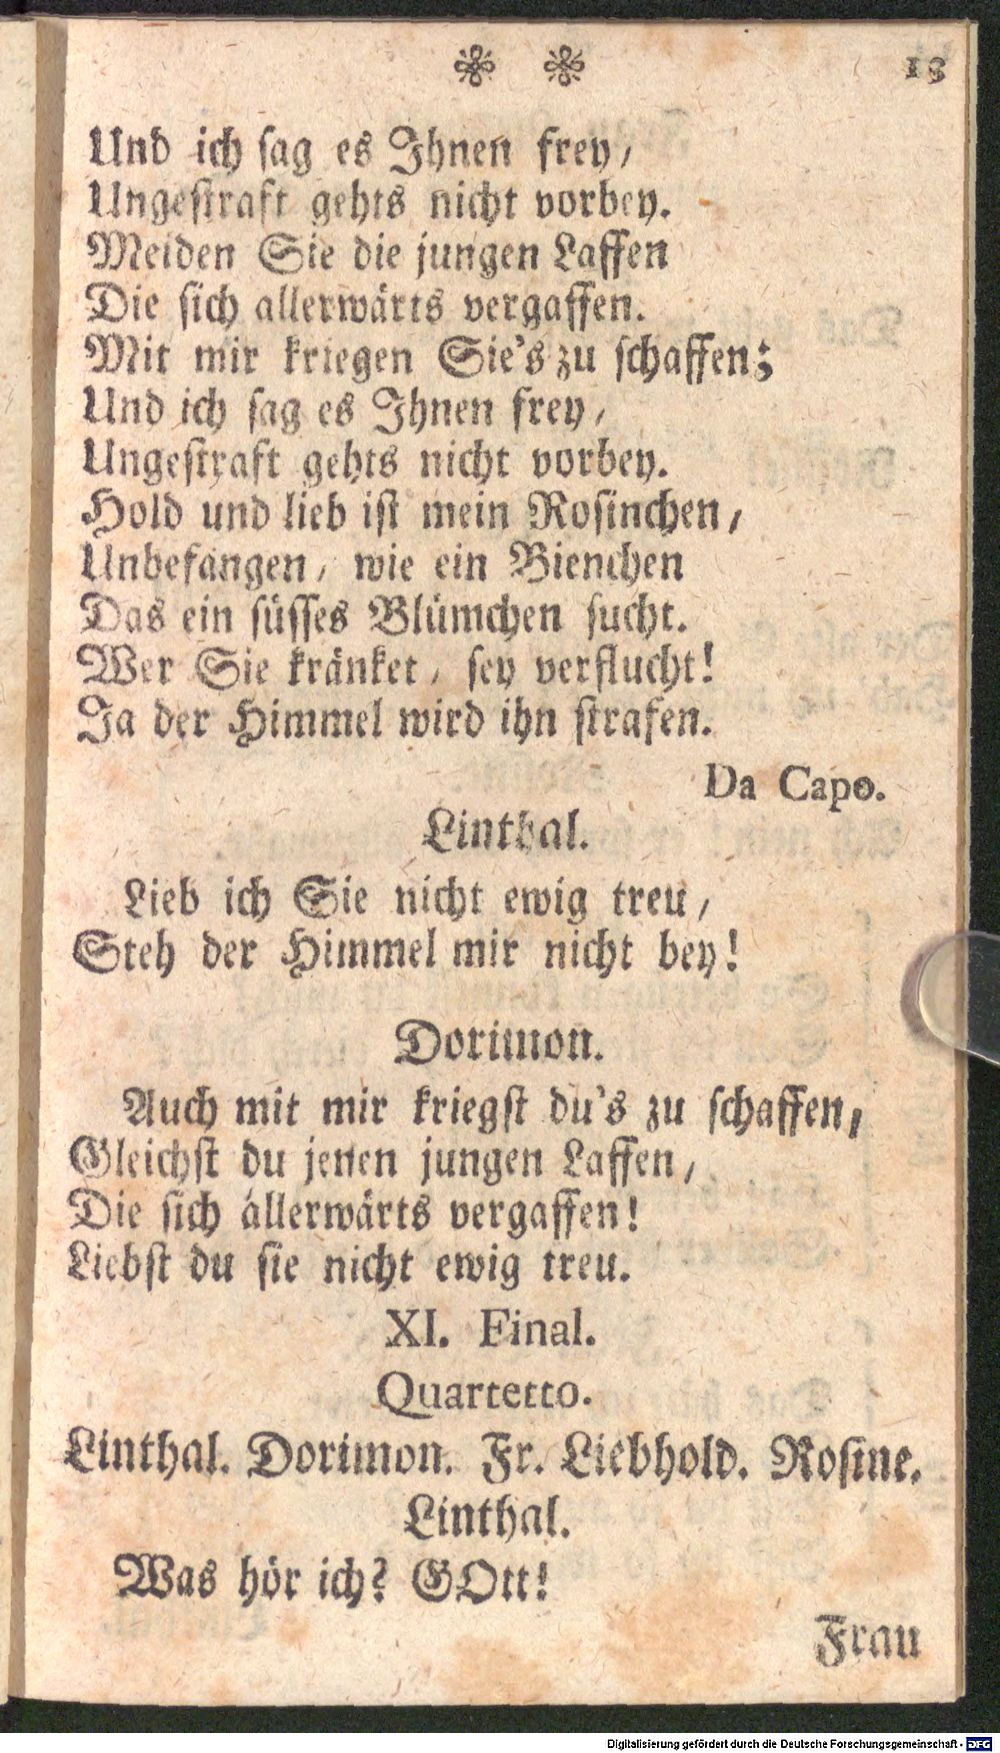 13
Und ich ſag es Ihnen frey,
Ungeſtraft gehts nicht vorbey.
Meiden Sie die jungen Laffen
Die ſich allerwärts vergaffen.
Mit mir kriegen Sie's zu ſchaffen;
Und ich ſag es Ihnen frey,
Ungeſtraft gehts nicht vorbey.
Hold und lieb iſt mein Roſinchen,
Unbefangen, wie ein Bienchen
Das ein ſüſſes Blümchen ſucht.
Wer Sie kränket, ſey verflucht!
Ja der Himmel wird ihn ſtrafen.
Da Capo.
Linthal.
Lieb ich Sie nicht ewig treu,
Steh der Himmel mir nicht bey!
Dorimon.
Auch mit mir kriegſt du's zu ſchaffen,
Gleichſt du jenen jungen Laffen,
Die ſich allerwärts vergaffen!
Liebſt du ſie nicht ewig treu.
XI. Final.
Quartetto.
Linthal. Dorimon. Fr. Liebhold. Roſine.
Linthal.
Was hör ich? GOtt!
Frau
Digitalisierung gefördert durch die Deutsche Forschungsgemeinschaft - DFG